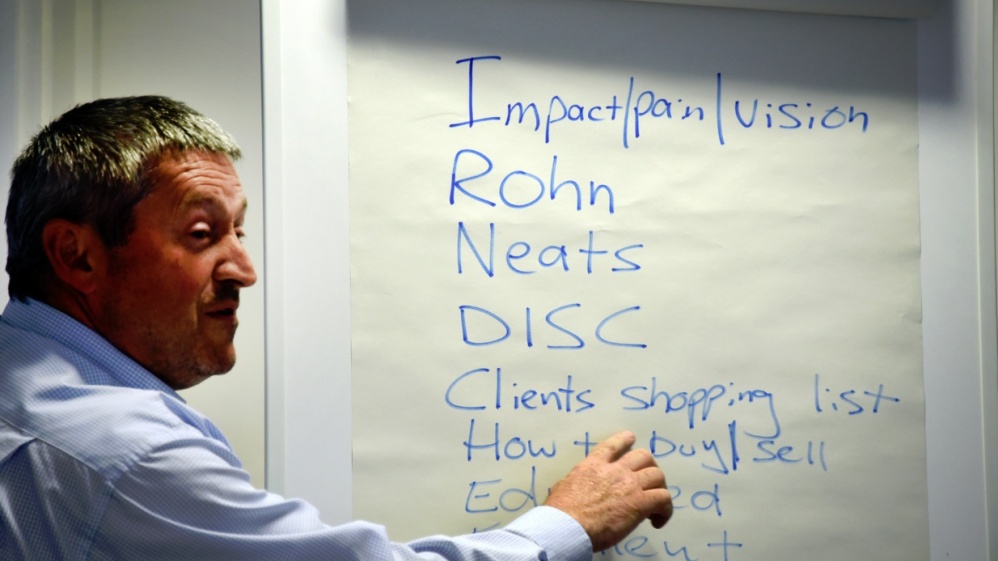 Impact/pain/vision
Rohn
Neats
DISC
Clients shopping list
How buy/sell